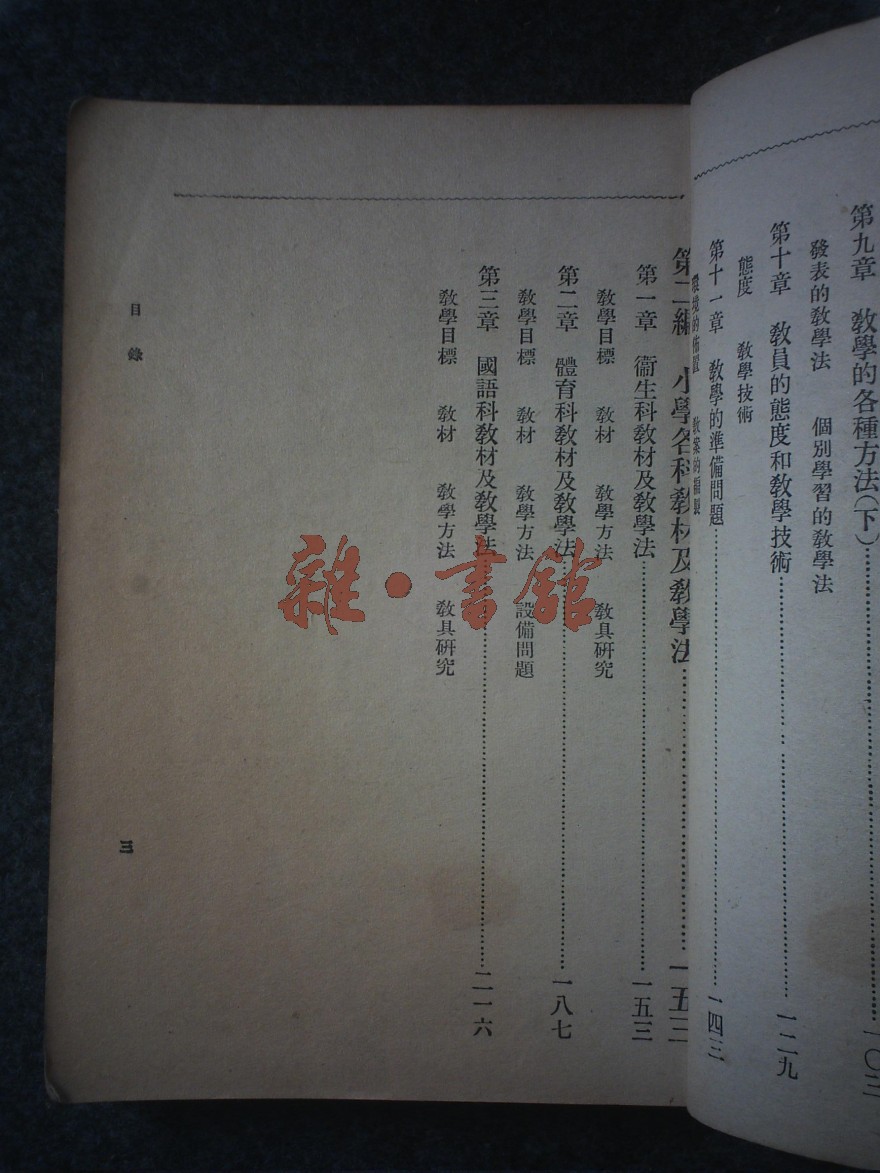 第九章 教學的各種方法(下)……一〇三
發表的教學法 個別學習的教學法
第十章 教員的態度和教學技術……一二九
態度 教學技術
第十一章 教學的準備問題……一四三
環境的佈置 教案的編製
第二編 小學各科教材及教學法……一五三
第一章 衞生科教材及教學法……一五三
教學目標 教材 教學方法 教具硏究
第二章 體育科教材及教學法……一八七
教學目標 教材 教學方法 設備問題
第三章 國語科教材及教學法……二一六
教學目標 教材 教學方法 教具硏究
目錄
三
雜·書館